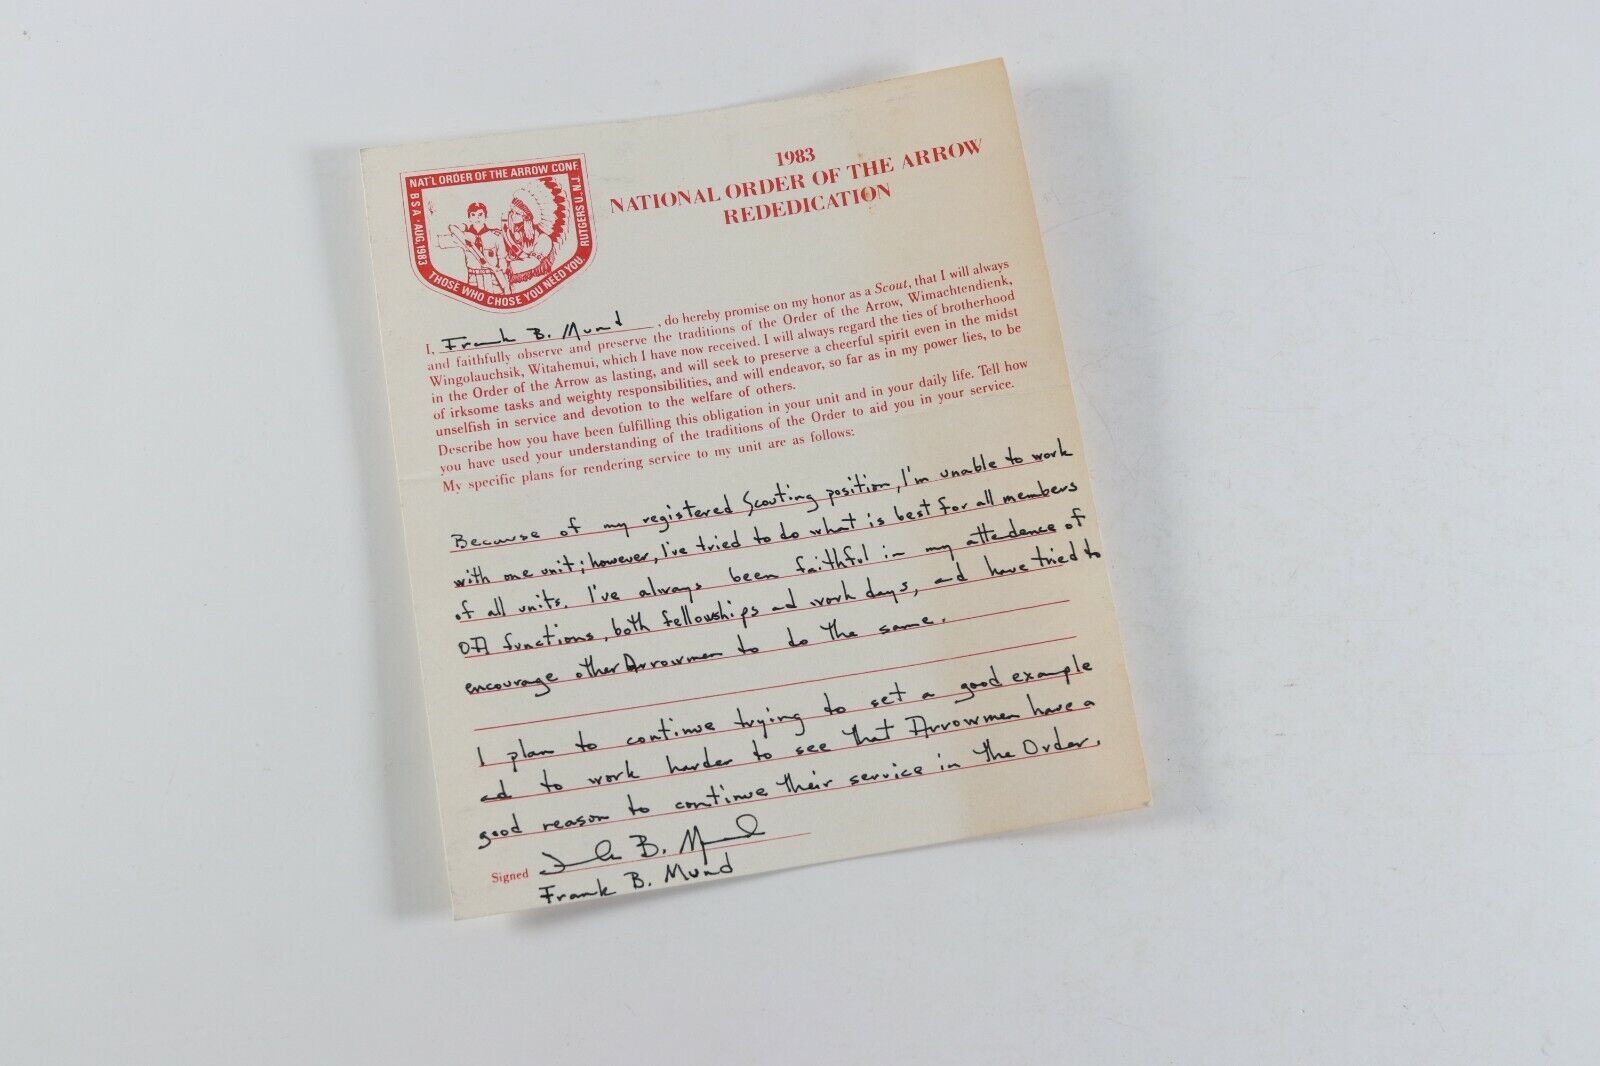 NAT'L ORDER OF THE ARROW CONF.
BSA · AUG. 1983
RUTGERS U. N.J.
THOSE WHO CHOSE YOU NEED YOU.
1983
NATIONAL ORDER OF THE ARROW
REDEDICATION
I, Frank B. Mund, do hereby promise on my honor as a Scout, that I will always
and faithfully observe and preserve the traditions of the Order of the Arrow, Wimachtendienk,
Wingolauchsik, Witahemui, which I have now received. I will always regard the ties of brotherhood
in the Order of the Arrow as lasting, and will seek to preserve a cheerful spirit even in the midst
of irksome tasks and weighty responsibilities, and will endeavor, so far as in my power lies, to be
unselfish in service and devotion to the welfare of others.
Describe how you have been fulfilling this obligation in your unit and in your daily life. Tell how
you have used your understanding of the traditions of the Order to aid you in your service.
My specific plans for rendering service to my unit are as follows:
Because of my registered Scouting position, I'm unable to work
with one unit; however, I've tried to do what is best for all members
of all units. I've always been faithful in my attendence of
OA functions, both fellowships and work days, and have tried to
encourage other Arrowmen to do the same.
I plan to continue trying to set a good example
and to work harder to see that Arrowmen have a
good reason to continue their service in the Order.
Signed Frank B. Mund
Frank B. Mund